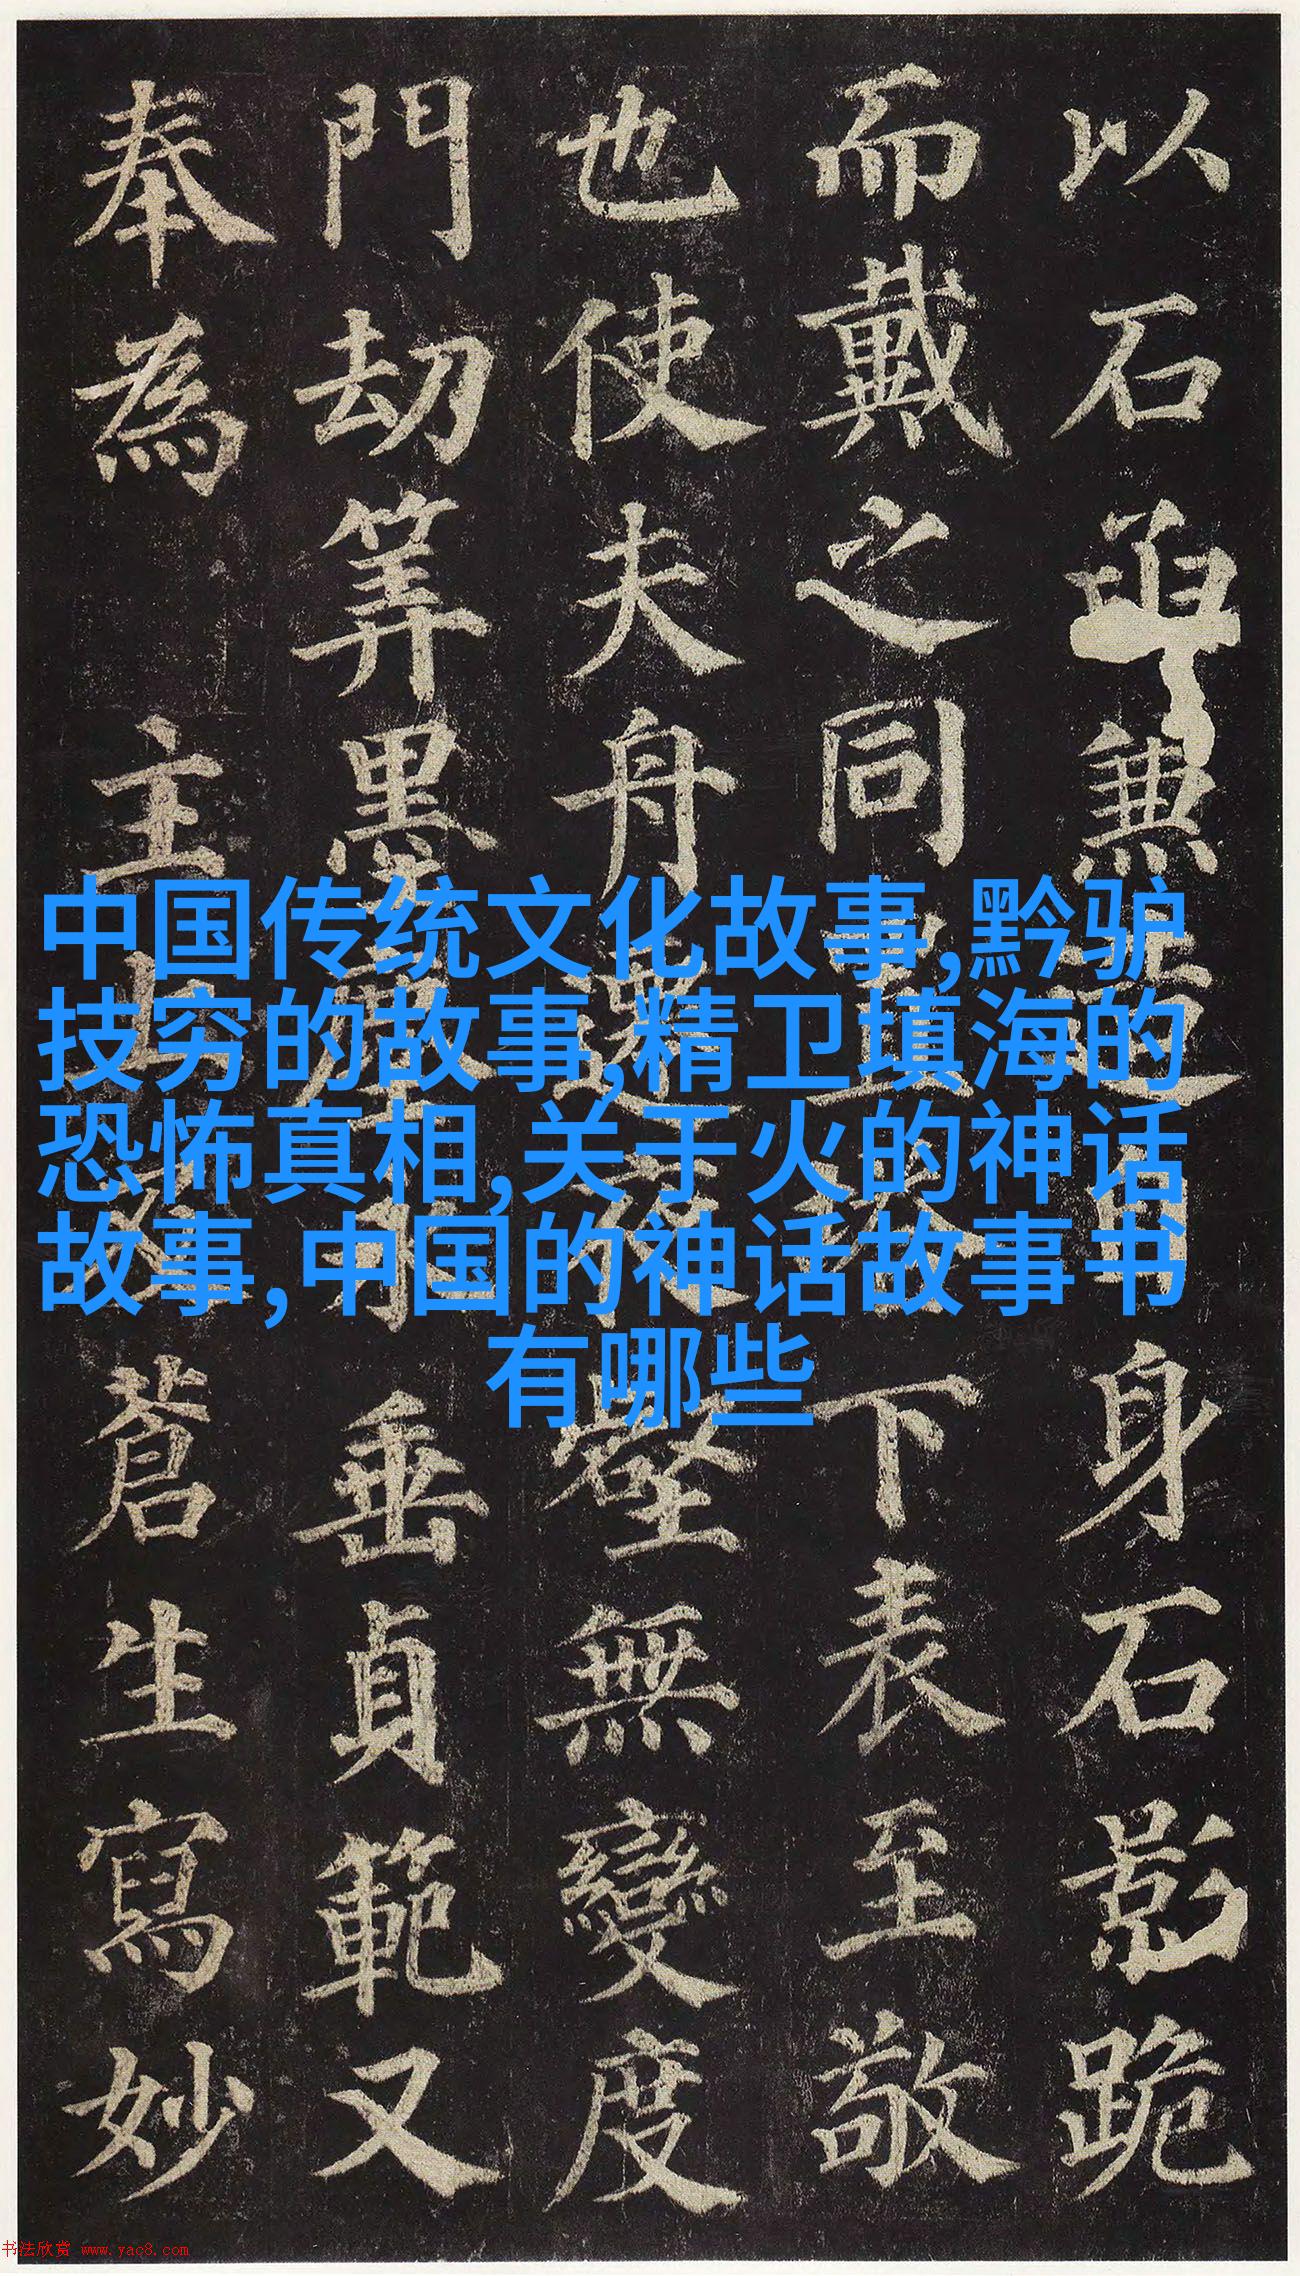 以石兼造自身石影跪
而戴之同置塔下表至敬
也使夫舟遷夜壑無變度
門劫筭墨塵永垂貞範又
奉為主上及蒼生寫妙
中国传统文化故事,黔驴
技穷的故事,精卫填海的
恐怖真相,关于火的神话
故事,中国的神话故事书
有哪些
书法欣赏 www.yac8.com